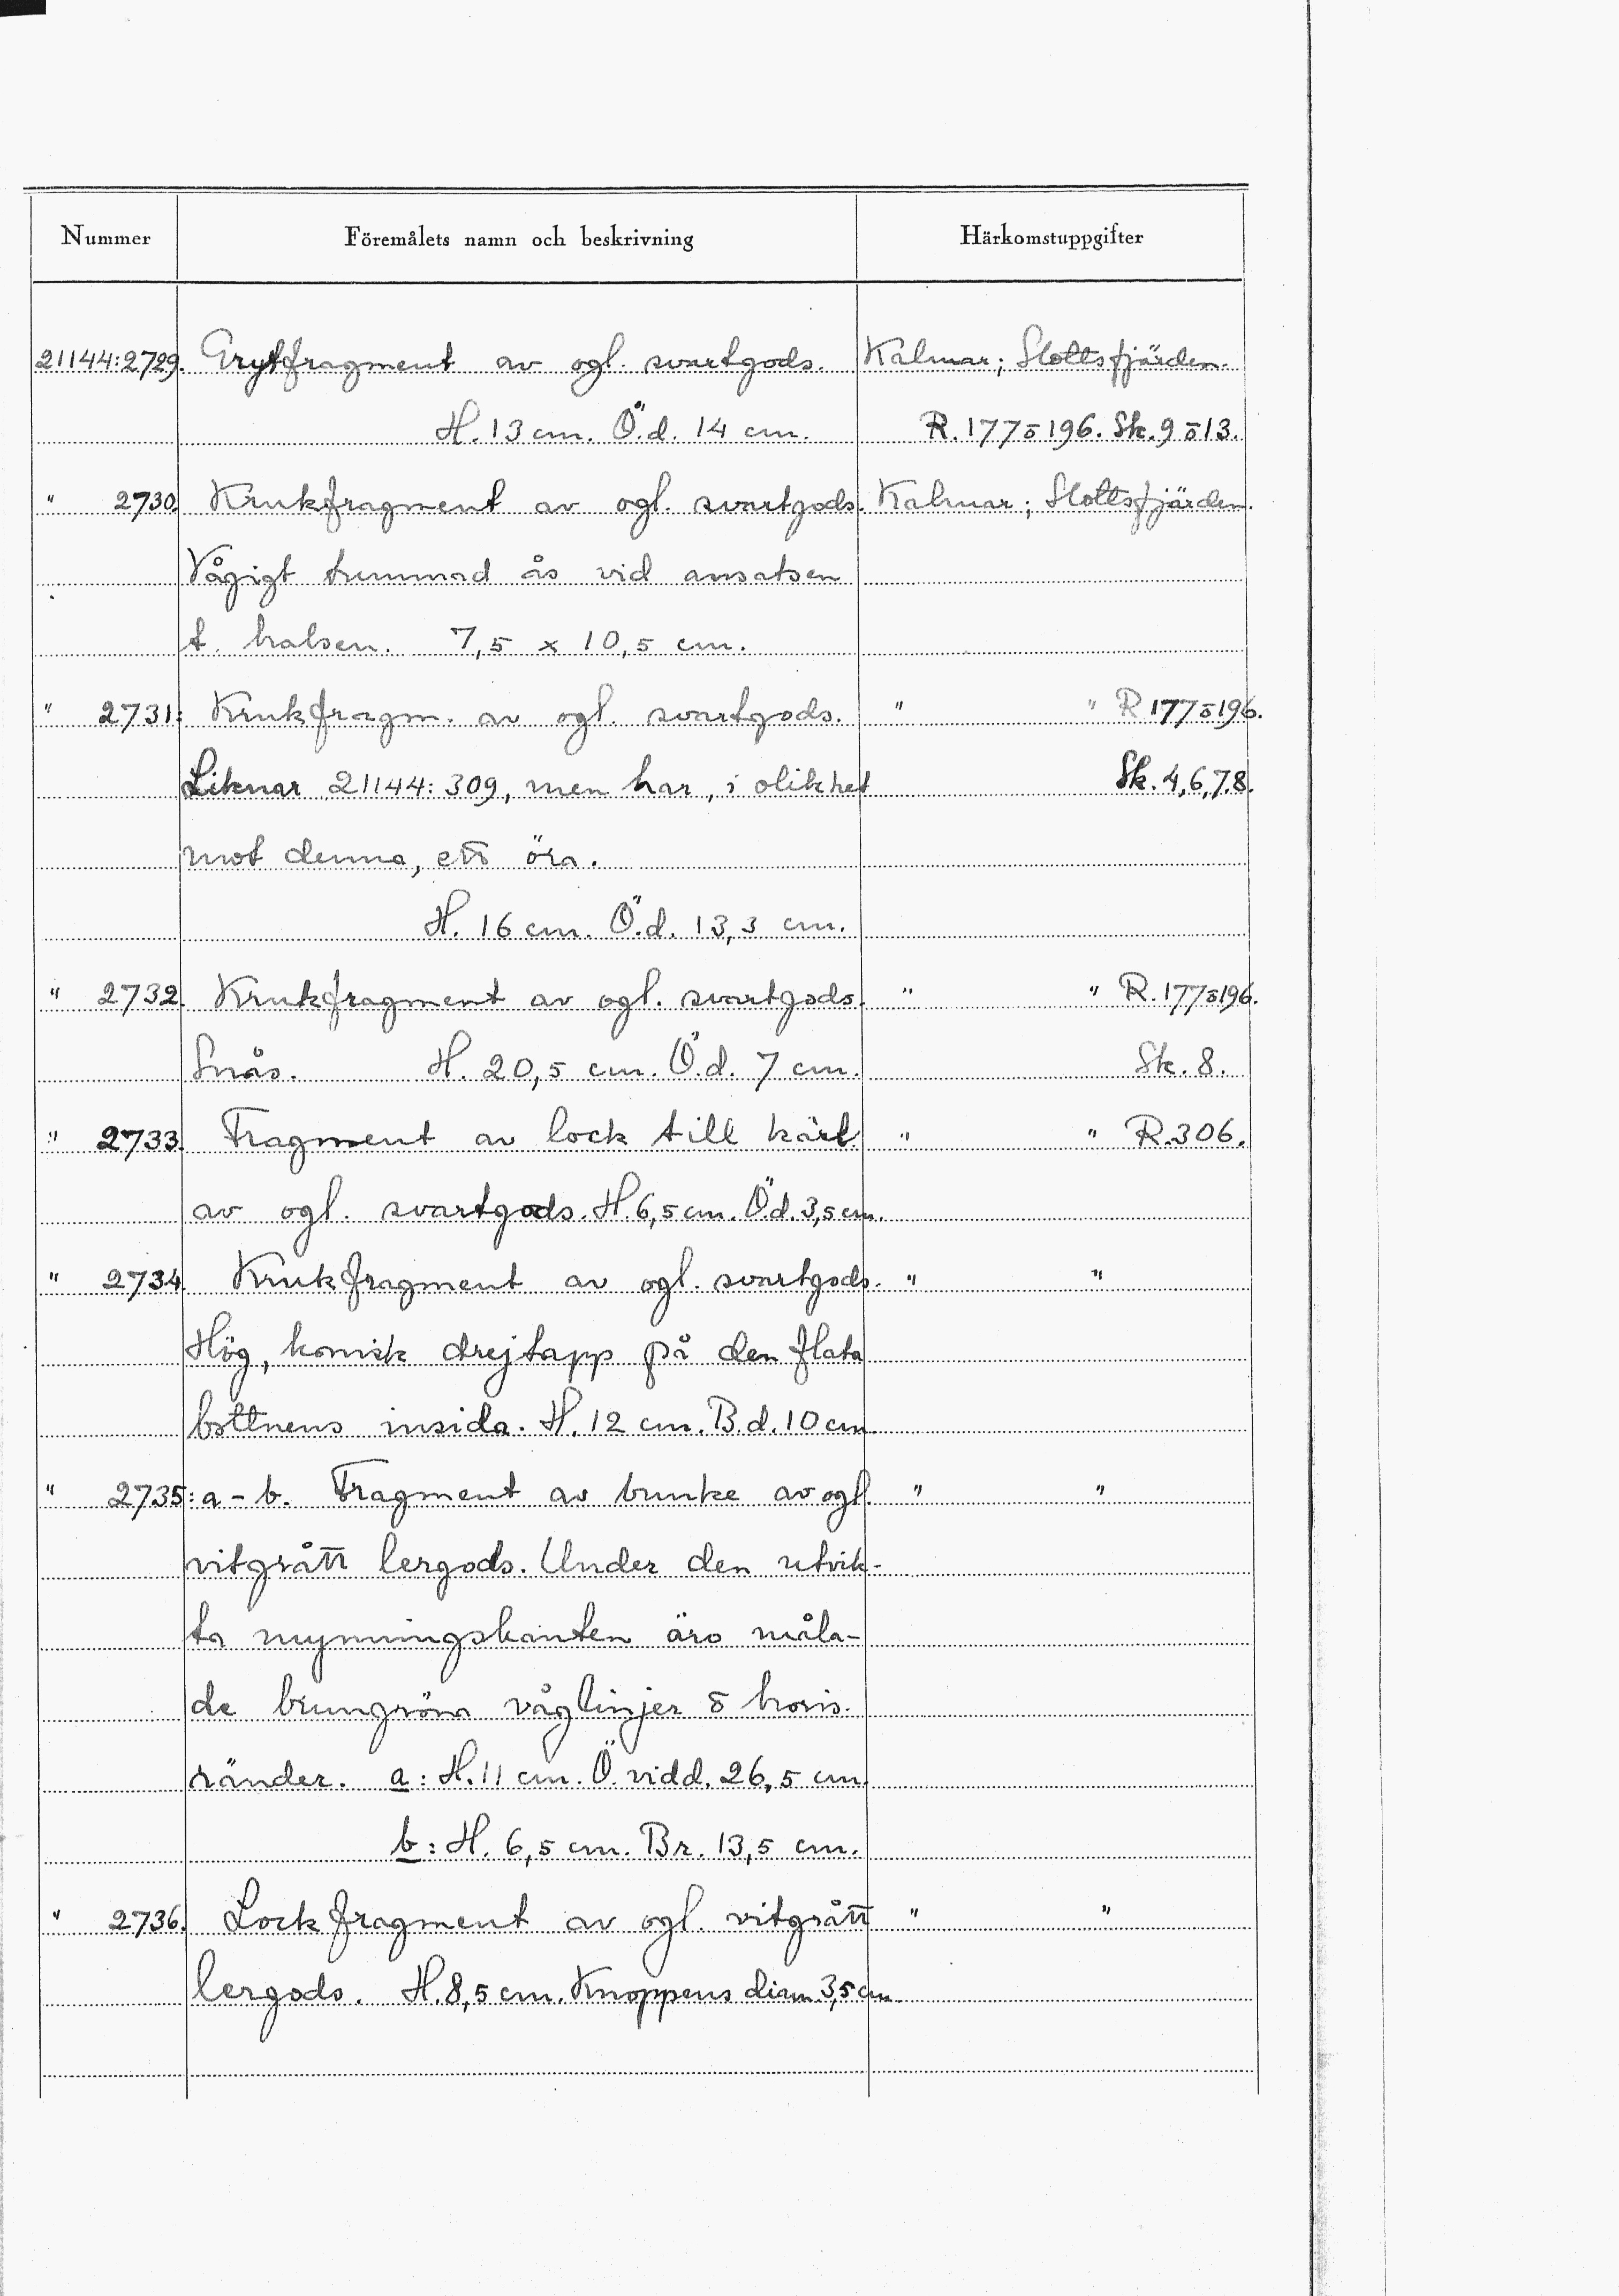 Nummer Föremålets namn och beskrivning Härkomstuppgifter
21144:2729. Grytfragment av ogl. svartgods. Kalmar; Slottsfjärden.
H. 13 cm. Ö.d. 14 cm. R. 177 o 196. Sk. 9 o 13.
" 2730. Krukfragment av ogl. svartgods. Kalmar; Slottsfjärden.
Vågigt tummad ås vid ansatsen
t. halsen. 7,5 x 10,5 cm.
" 2731: Krukfragm. av ogl. svartgods. " " R 177 o 196.
Liknar 21144: 309, men har, i olikhet Sk. 4,6,7.8.
mot denna, ett öra.
H. 16 cm. Ö.d. 13,3 cm.
" 2732. Krukfragment av ogl. svartgods. " " R. 177 o 196.
Smås. H. 20,5 cm. Ö.d. 7 cm. Sk. 8.
" 2733. Fragment av lock till kärl " " R.306.
av ogl. svartgods. H. 6,5 cm. Ö.d. 3,5 cm.
" 2734. Krukfragment av ogl. svartgods. " "
Hög, konisk drejtapp på den flata
bottnens insida. H. 12 cm. B.d. 10 cm.
" 2735: a - b. Fragment av bunke av ogl. " "
vitgrått lergods. Under den utvik-
ta mynningskanten äro måla-
de brungröna våglinjer o horis.
ränder. a: H. 11 cm. Ö. vidd. 26,5 cm.
b: H. 6,5 cm. Br. 13,5 cm.
" 2736. Lockfragment av ogl. vitgrått " "
lergods. H. 8,5 cm. Knoppens diam 3,5 cm.